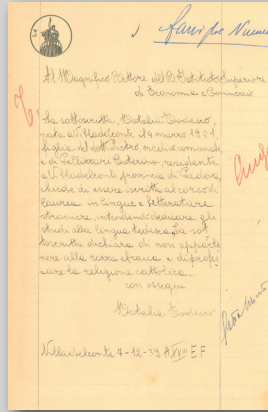 Al Magnifico Rettore del R. Istituto Superiore
di Economia e Commercio
La sottoscritta, Natalia Todesco,
nata a Villadelconte il 4 marzo 1921,
figlia del dott. Pietro, medico comunale
e di Pellizzari Caterina, residente
a Villadelconte provincia di Padova,
chiede di essere iscritta al corso di
laurea in lingue e letterature
straniere, intendendo dedicare gli
studi alla lingua tedesca. La sot-
toscritta dichiara di non apparte-
nere alla razza ebraica e di profes-
sare la religione cattolica.
con ossequi
Natalia Todesco
Villadelconte 7-12-39 XVIII E F